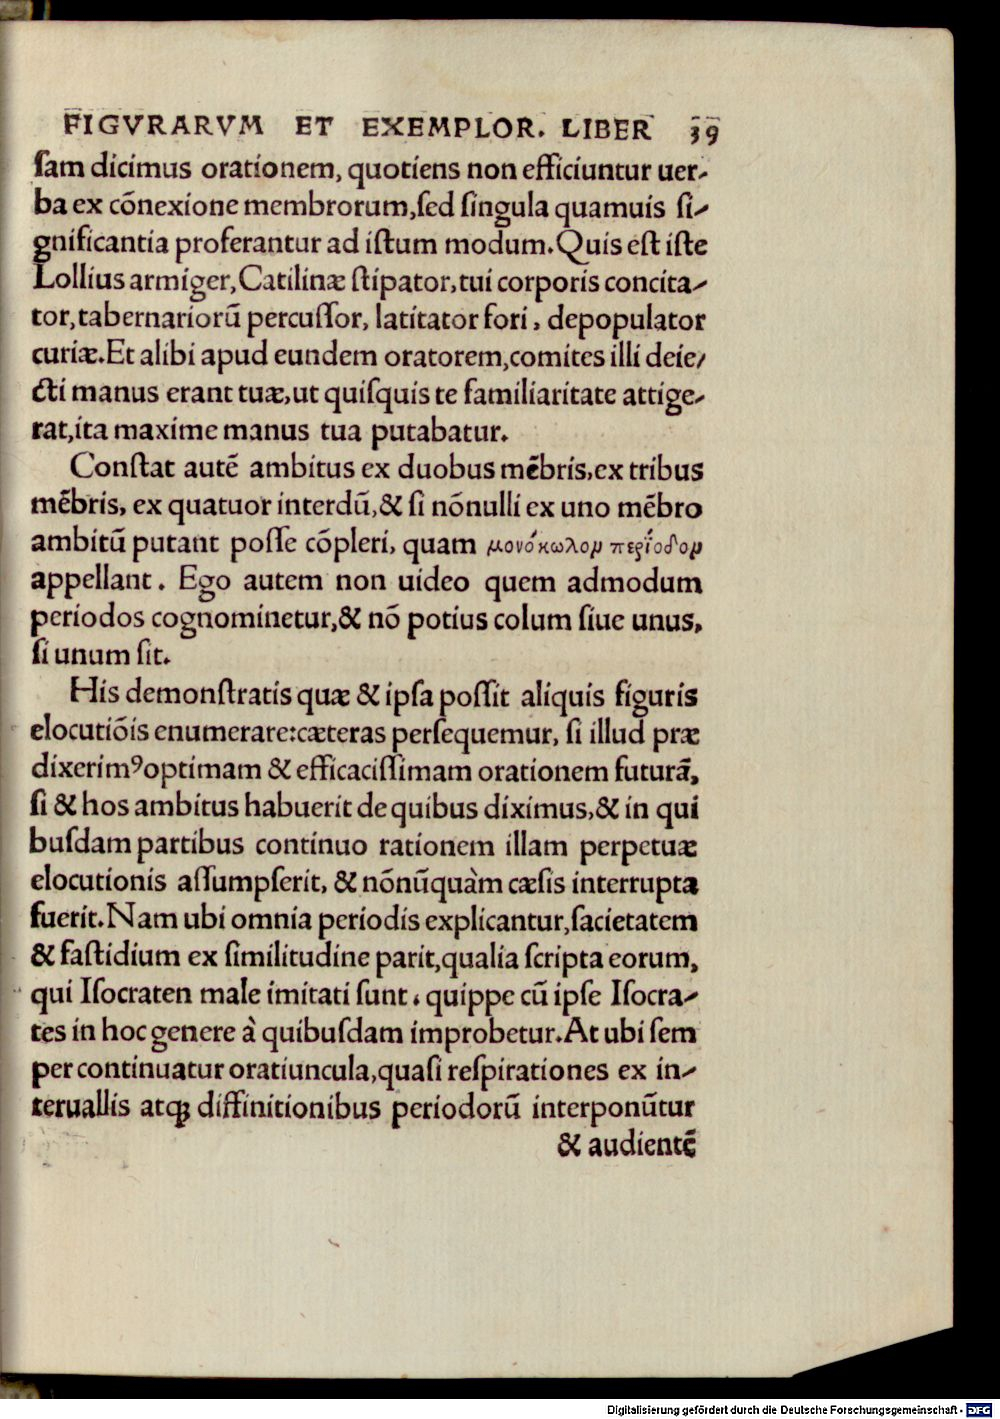 FIGVRARVM ET EXEMPLOR. LIBER 39
ſam dicimus orationem, quotiens non efficiuntur uer-
ba ex cōnexione membrorum,ſed ſingula quamuis ſi-
gnificantia proferantur ad iſtum modum.Quis eſt iſte
Lollius armiger,Catilinæ ſtipator,tui corporis concita-
tor,tabernariorū percuſſor, latitator fori, depopulator
curiæ.Et alibi apud eundem oratorem,comites illi deie/
cti manus erant tuæ,ut quiſquis te familiaritate attige-
rat,ita maxime manus tua putabatur.
Conſtat autē ambitus ex duobus mēbris,ex tribus
mēbris, ex quatuor interdū,& ſi nōnulli ex uno mēbro
ambitū putant poſſe cōpleri, quam μονόκωλομ περίοδομ
appellant. Ego autem non uideo quem admodum
periodos cognominetur,& nō potius colum ſiue unus,
ſi unum ſit.
His demonſtratis quæ & ipſa poſſit aliquis figuris
elocutiōis enumerare:cæteras perſequemur, ſi illud præ
dixerimꝰoptimam & efficaciſſimam orationem futurā,
ſi & hos ambitus habuerit de quibus diximus,& in qui
buſdam partibus continuo rationem illam perpetuæ
elocutionis aſſumpſerit, & nōnūquàm cæſis interrupta
fuerit.Nam ubi omnia periodis explicantur,ſacietatem
& faſtidium ex ſimilitudine parit,qualia ſcripta eorum,
qui Iſocraten male imitati ſunt, quippe cū ipſe Iſocra-
tes in hoc genere à quibuſdam improbetur.At ubi ſem
per continuatur oratiuncula,quaſi reſpirationes ex in-
teruallis atq; diffinitionibus periodorū interponūtur
& audientē
Digitalisierung gefördert durch die Deutsche Forschungsgemeinschaft - DFG